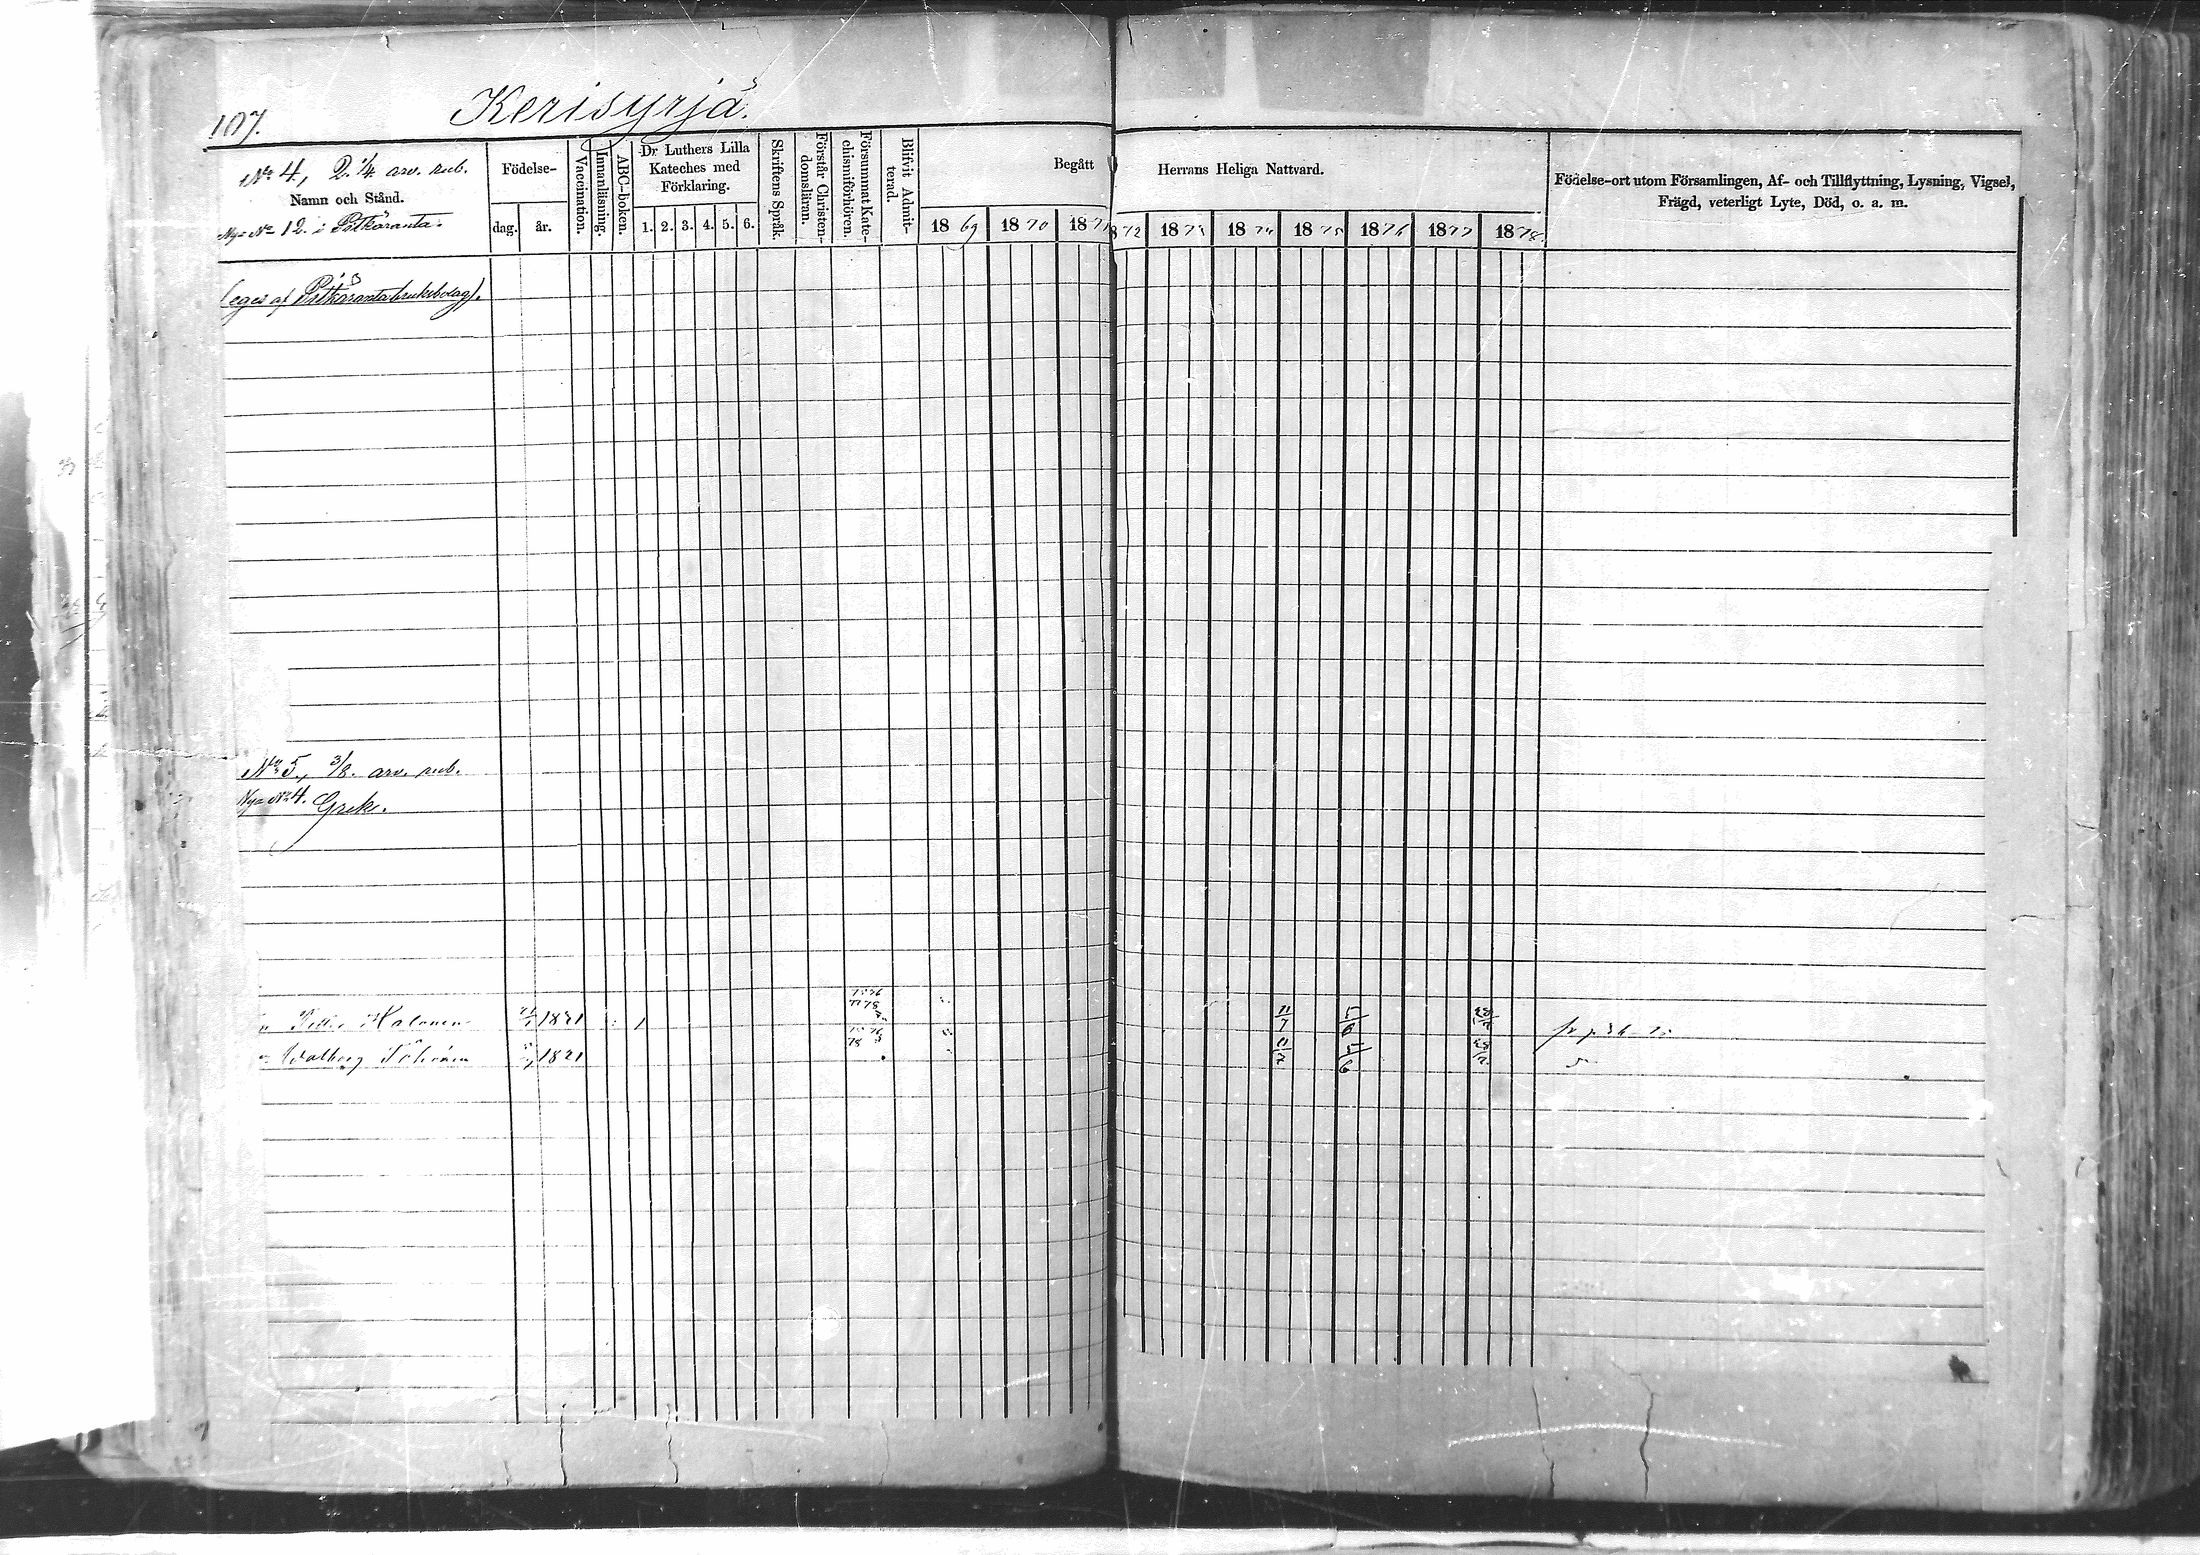 107.
Kerisyrjä.
No 4, 2 1/4 arv. rub.
Namn och Stånd.
Nya No 12. i Pitkäranta.
Födelse-
dag.
år.
Vaccination.
Innanläsning.
ABC-boken.
Dr Luthers Lilla
Kateches med
Förklaring.
1. 2. 3. 4. 5. 6.
Skriftens Språk.
Förstår Christen-
domsläran.
Försummat Kate-
chismiförhören.
Blifvit Admit-
terad.
Begått Herrans Heliga Nattvard.
1869 1870 1871 1872 1873 1874 1875 1876 1877 1878.
Födelse-ort utom Församlingen, Af- och Tillflyttning, Lysning, Vigsel,
Frägd, veterligt Lyte, Död, o. a. m.
(eges af Pitkäranta bruksbolag).
No 5, 3/8. arv. rub.
Nya No 4. Grek.
Halonen 1821 11/7
Walborg 1821 11/7